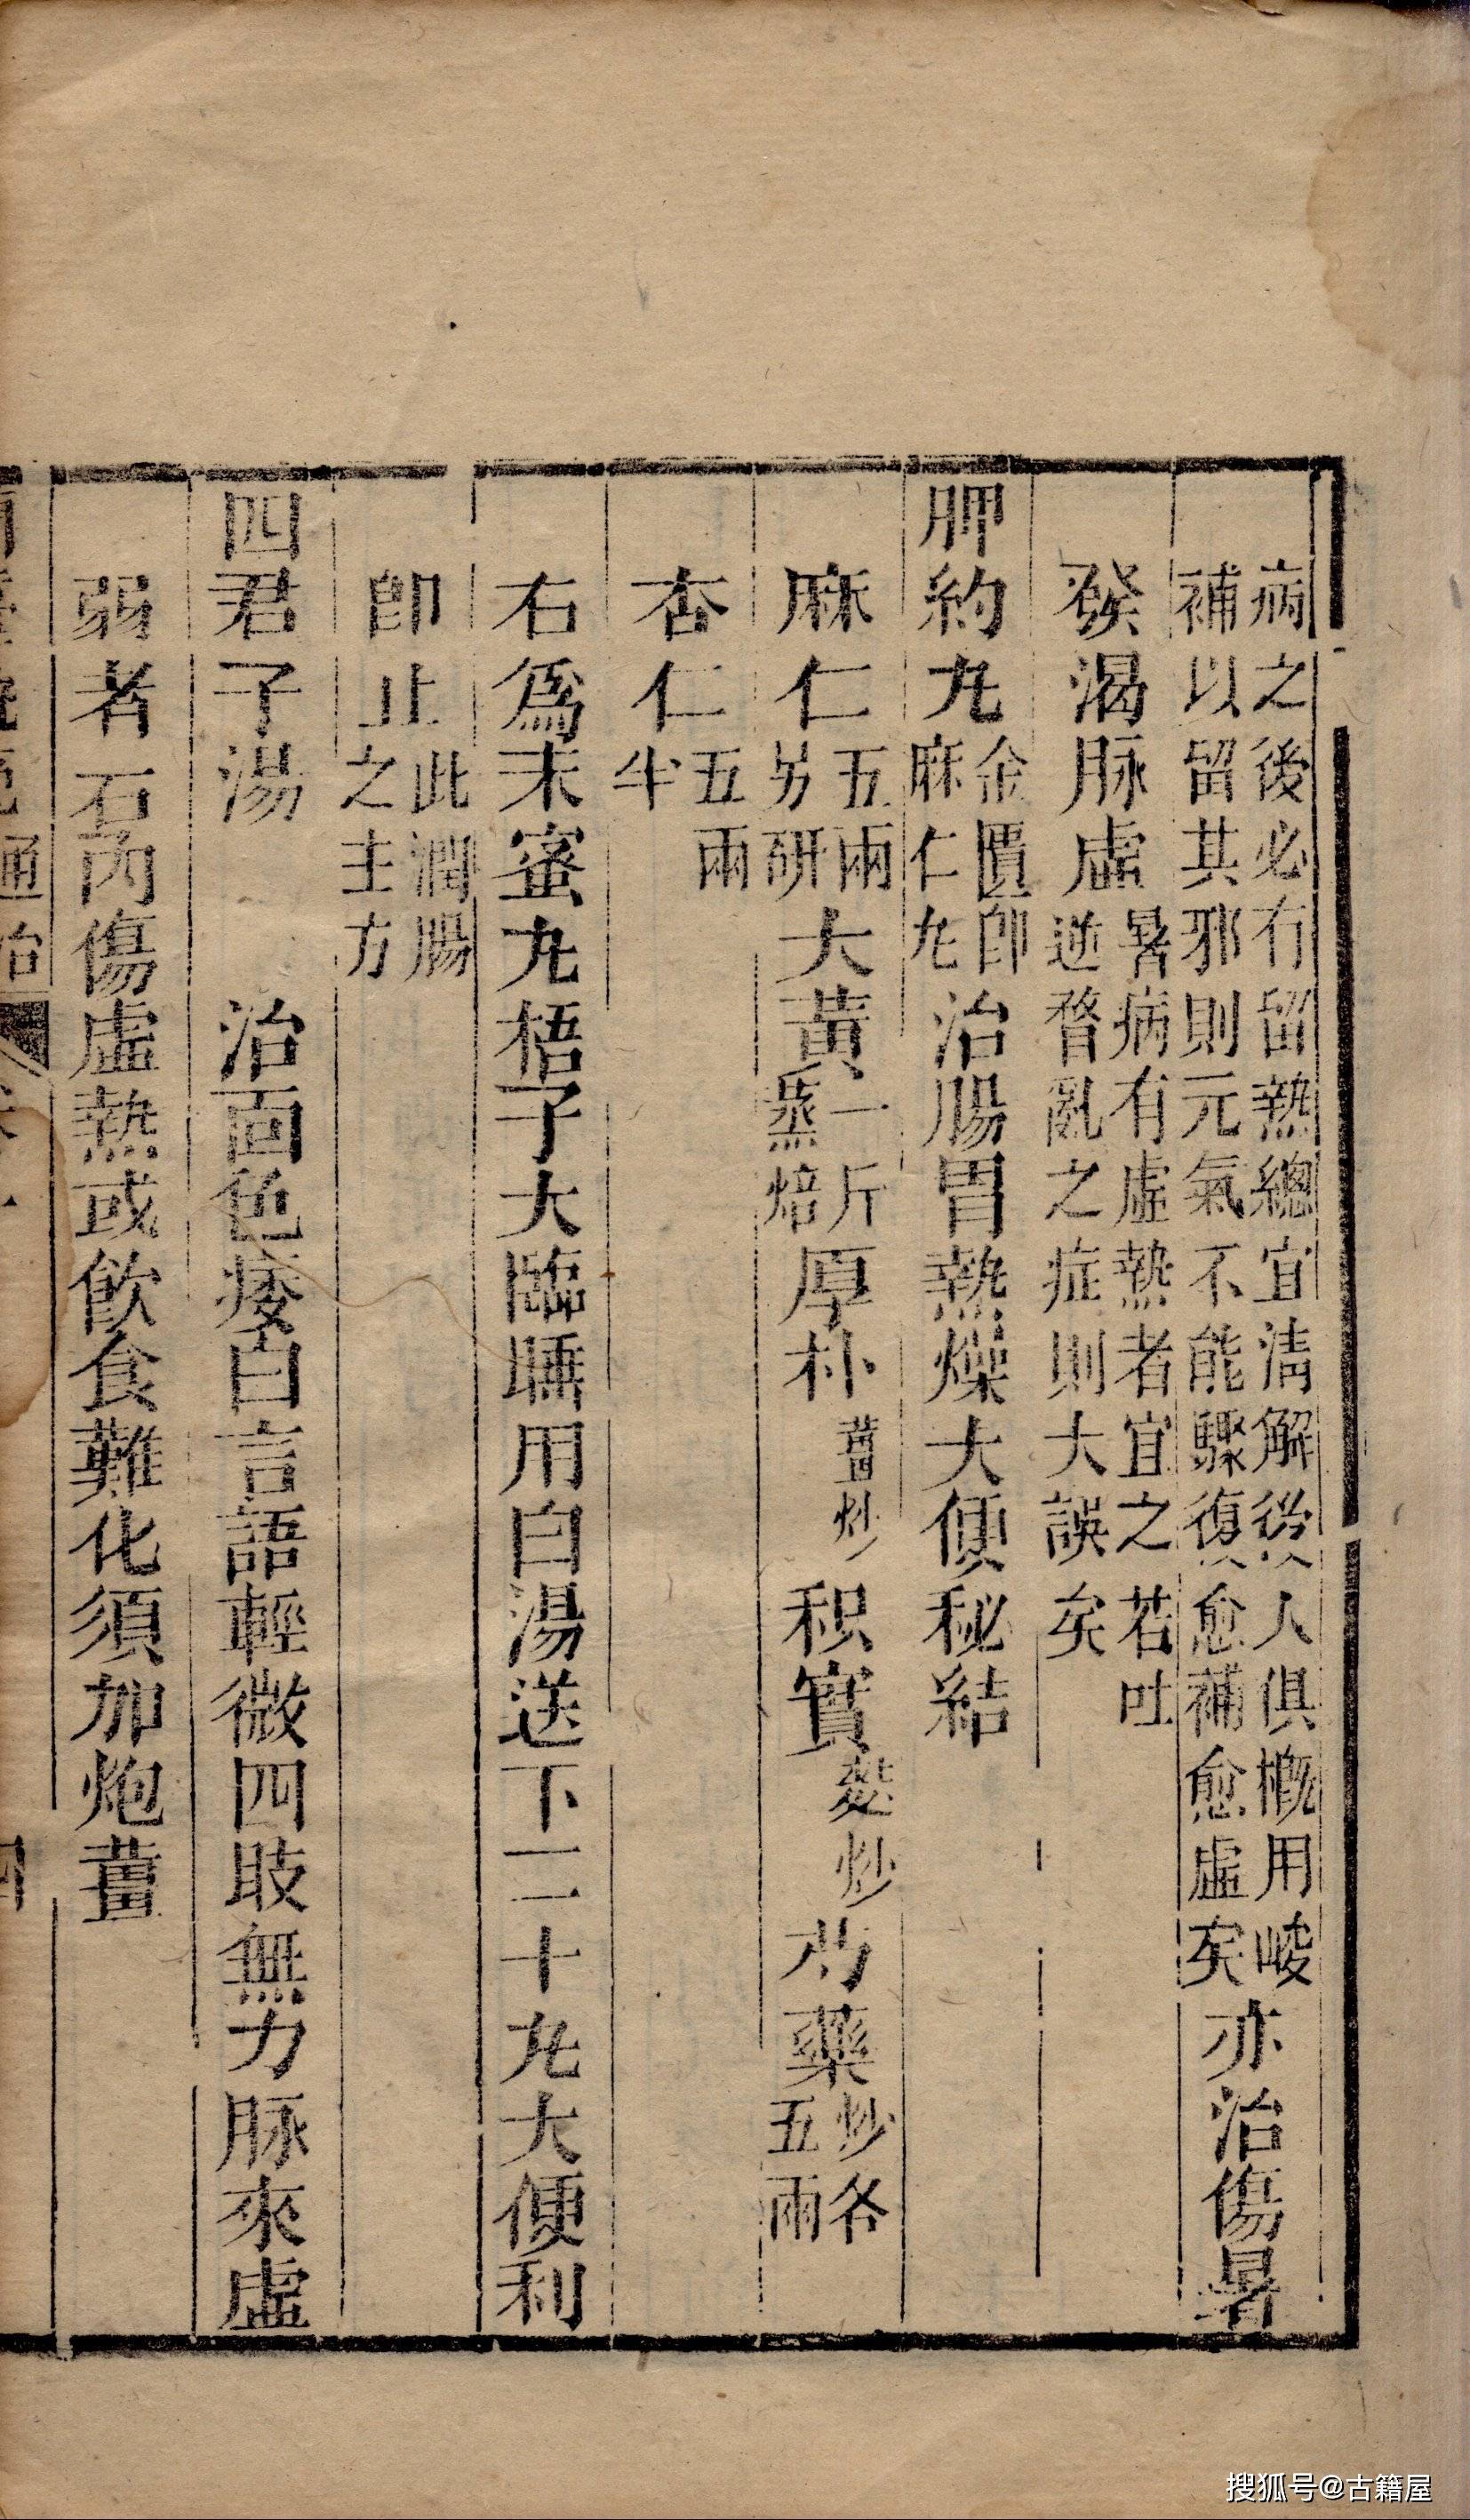 病之後必有留熱總宜清解後人俱概用峻
補以留其邪則元氣不能驟復愈補愈虛矣亦治傷暑
發渴脉虛暑病有虛熱者宜之若吐
逆瞀亂之症則大誤矣
脾約丸金匱即麻仁丸治腸胃熱燥大便秘結
麻仁五兩另研大黃一斤蒸焙厚朴薑炒枳實麩炒芍藥炒各五兩
杏仁五兩半
右爲末蜜丸梧子大臨睡用白湯送下二十丸大便利
即止此潤腸之主方
四君子湯 治面色痿白言語輕微四肢無力脉來虛
弱者若內傷虛熱或飲食難化須加炮薑
通治
四
搜狐号@古籍屋